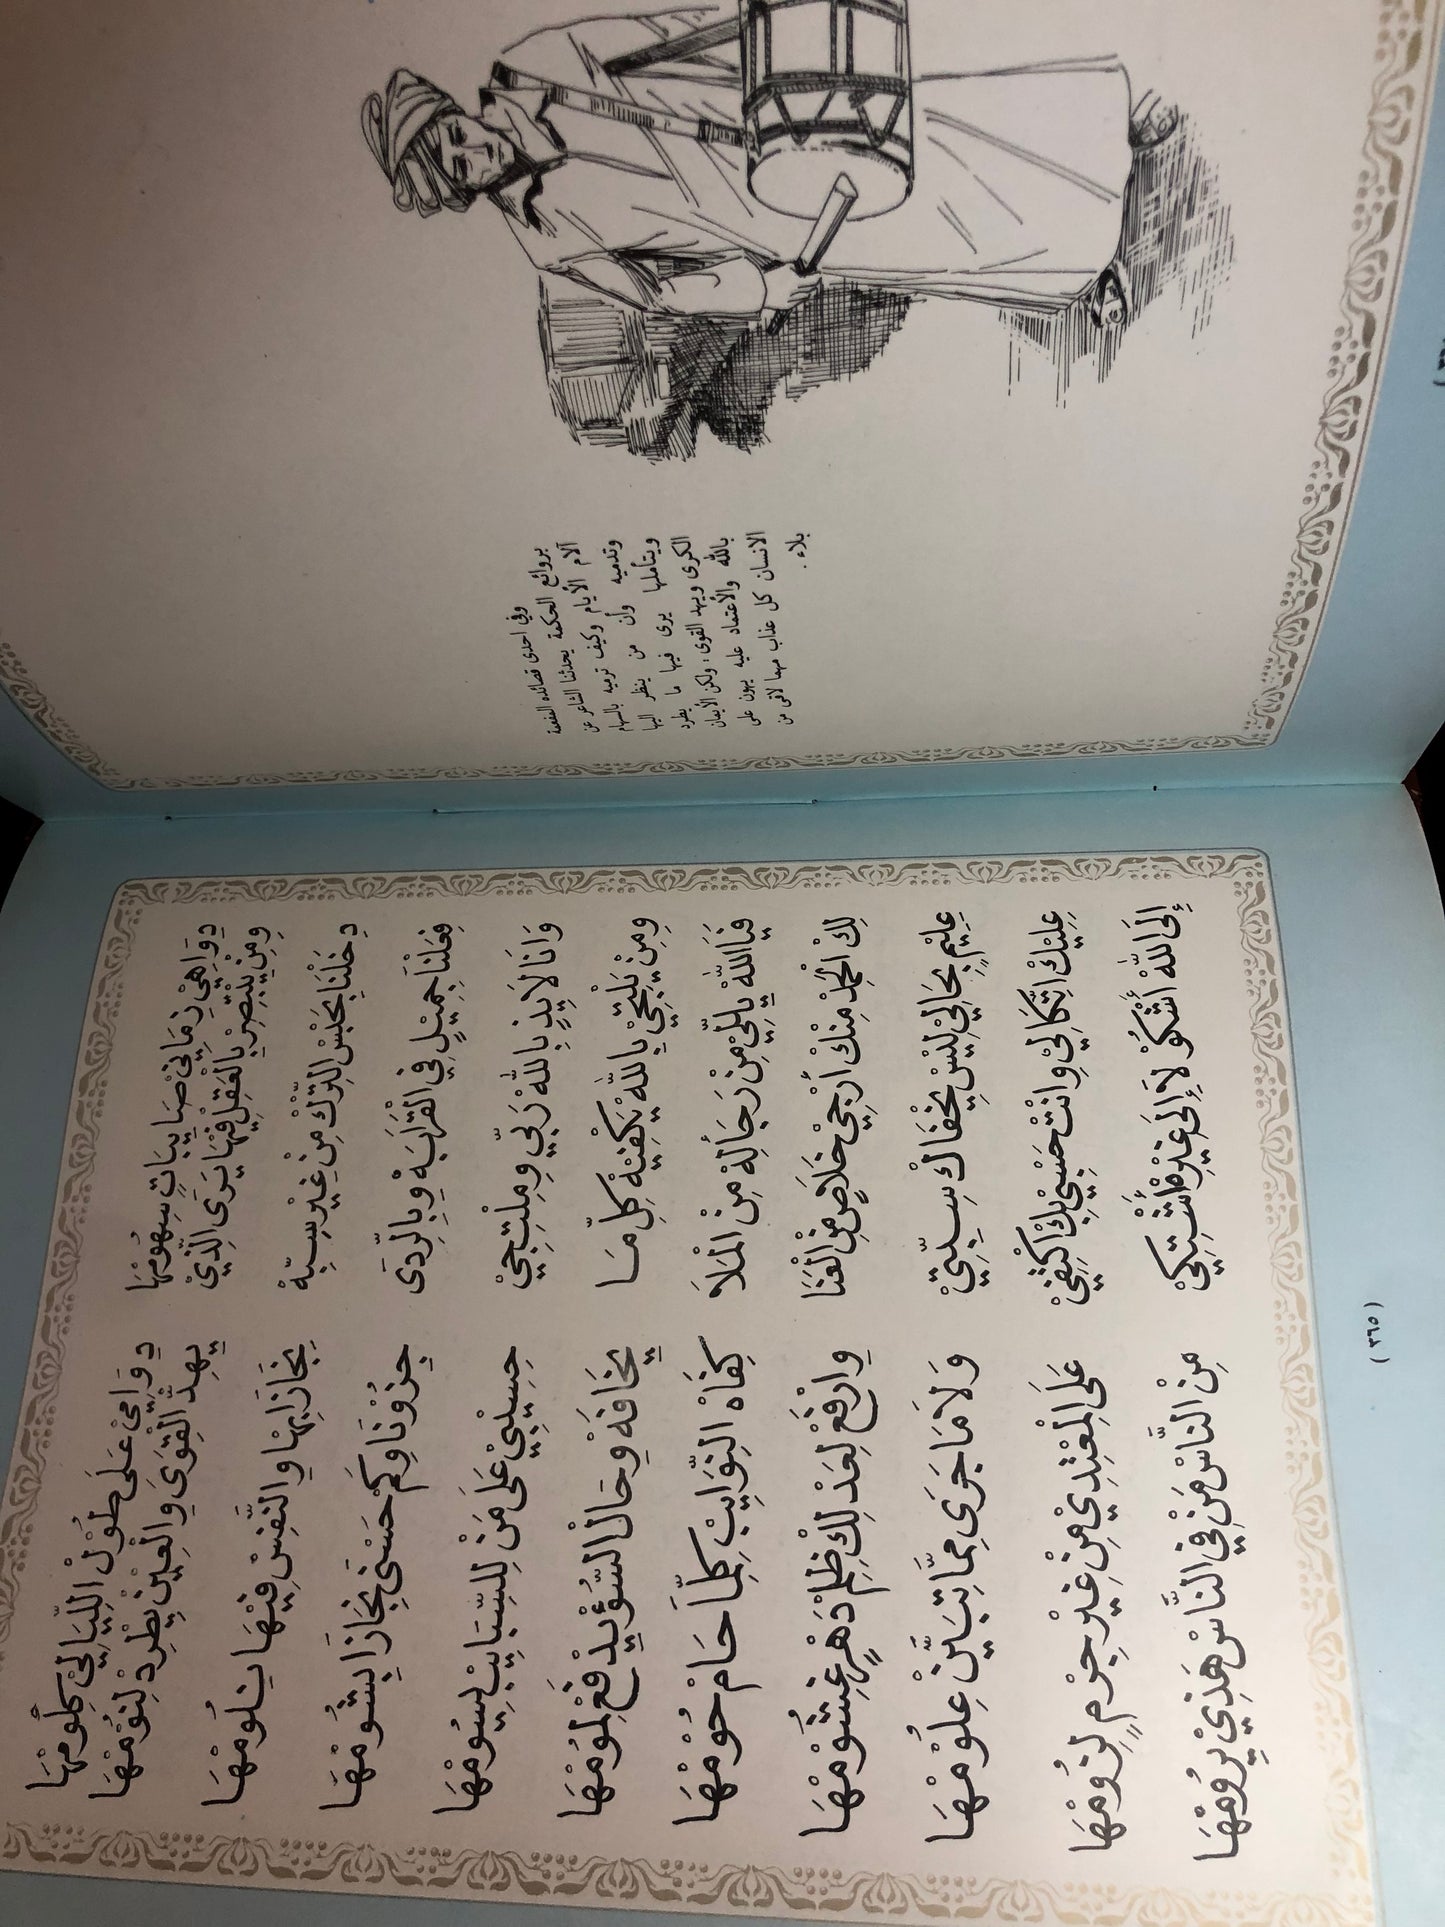 وفي احدى قصائده المفعمة
بروائع الحكمة يحدثنا الشاعر عن
آلام الأيام وكيف ترميه بالسهام
وتدميه وأن من ينظر اليها
ويتأملها يرى فيها ما يطرد
الكرى ويهد القوى، ولكن الأيمان
بالله والأعتماد عليه يهون على
الانسان كل عذاب مهما لاقى من
بلاء.
دِوَاهِيْ زِمَانِيْ صَايبَاتٍ سِهُومْهَا دِوَامِيْ عَلَى طُوْل اللِّيَالِيْ كُلُومْهَا
وِمِنْ يِنْتِصِرْ بِالْعَقِلْ فِيْهَا يَرَى الِّذِيْ يهِدّ القِوَى وِالْعِيْن يَطْرِدْ لِنُوْمْهَا
دِخَلْنَا بحَبْس التِّرْك مِنْ غِيْر سِبّهْ نِجَازَا بِهَا وِالنَّفِسْ فِيْهَا يِلُومْهَا
فِعَلْنَا جِمِيْلٍ فِي الْقَرَابَهْ وِبِالرِّدَى جِزُوْنَا وِكَمْ حَسَنَى نِجَازَا بِشُومْهَا
وَانَا لاَيِذٍ بِاللهْ رَبِّي وِمِلْتِجِيْ حِسِيْبِيْ عَلَى مَنْ لِلسِّبَايِبْ يِسُومْهَا
وِمِنْ يَلْتِجِيْ بِاللهْ يَكْفِيْهْ كِلّ مَا يخَافَهْ وْحَال السُّوّ يَدْفَعْ لِمُومْهَا
فَيَا اللهْ يَاللِّيْ مِنْ رَجَا لِهْ مِنْ الْمَلاَ كِفَاهْ النِّوَايِبْ كِلِّمَا حَامْ حُوْمْهَا
لِكْ الْحَمِدْ مِنْكْ أرْجِيْ خَلاَصٍ مِنْ الْعَنَا وِارْفَعْ لِعَدْلِكْ ظِلِمْ دَهْرٍ غِشُوْمْهَا
عِلِيْمٍ بحَالِيْ لِيْسْ يخْفَاكْ سِبِّتِيْ وَلاَ مَا جَرَى مِمَّا تِبَيَّنْ عِلُوْمْهَا
عِلِيْكْ اتِّكَالِيْ وِانْتْ حَسْبِيْ بِكْ اكْتِفِيْ عَلَى الْمِعْتِدِيْ مِنْ غِيْر جِرْمٍ لِزُومْهَا
إِلَى اللهْ أَشْكُوْ لاَ إِلَى غَيْرِهْ أَشْتِكِيْ مِنْ النَّاسْ مَنْ فِي النَّاسْ هَذِيْ يِرُومْهَا
( ٣٦٥ )